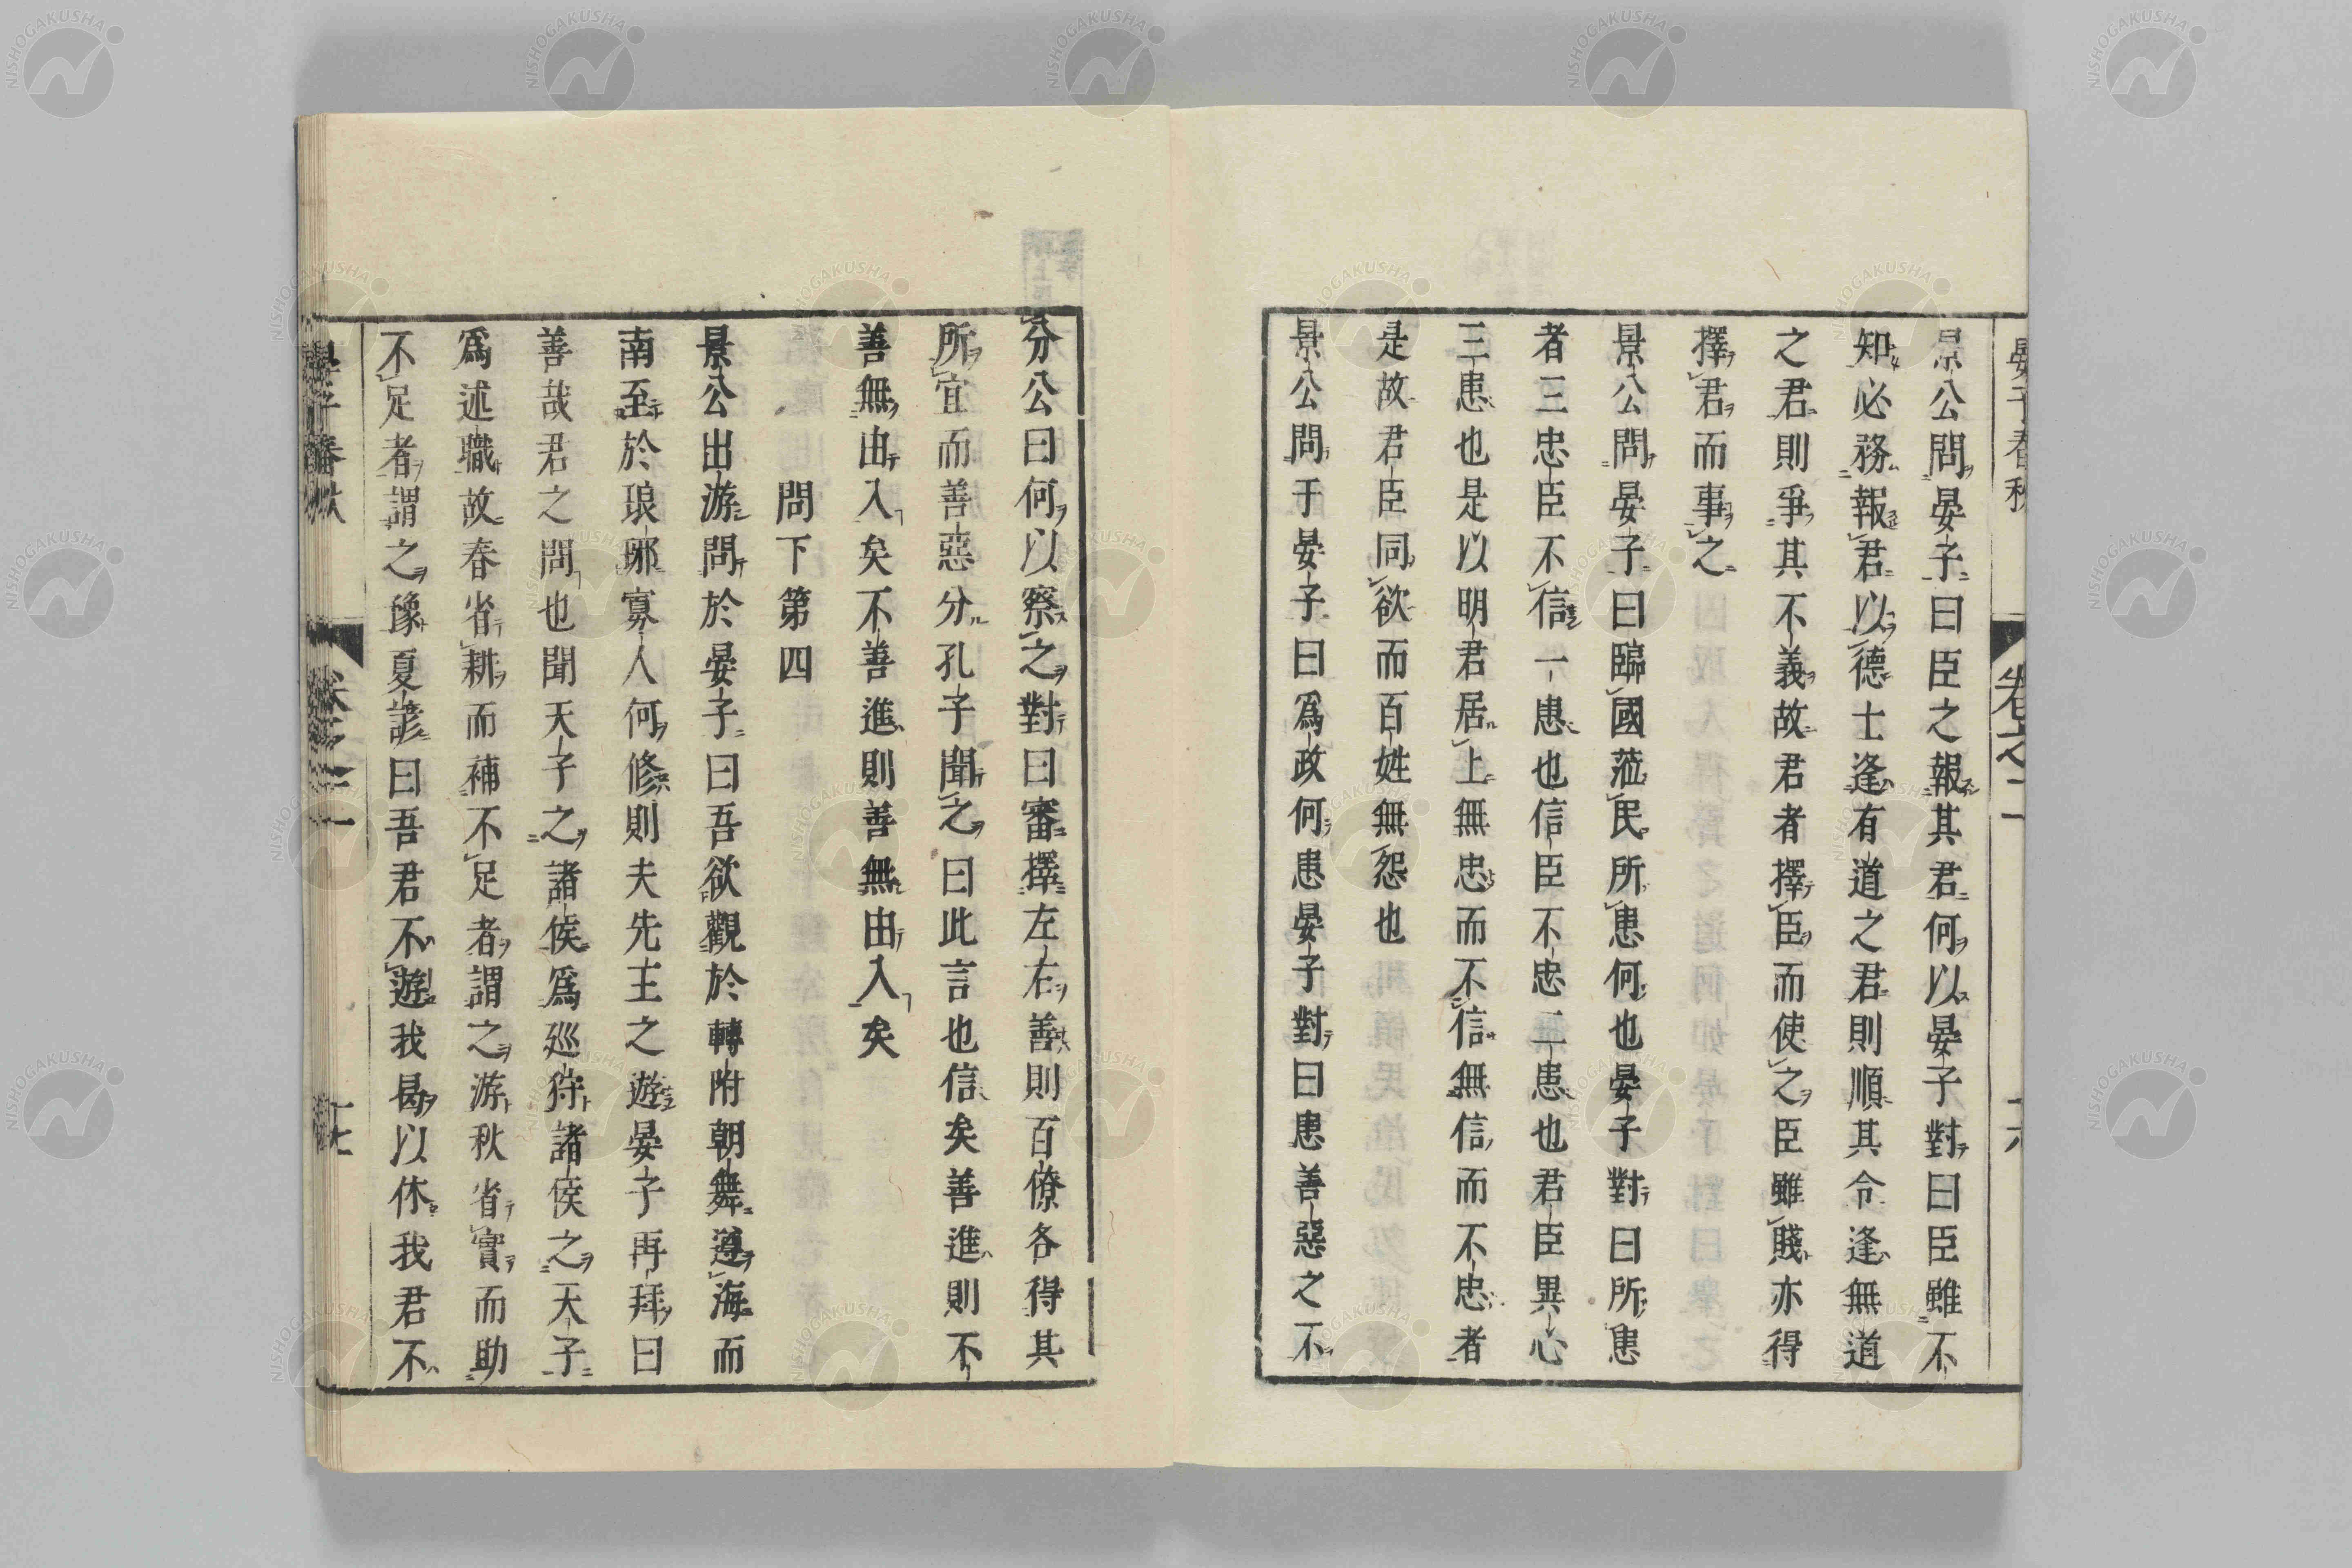 晏子春秋 卷之二 十六
景公問晏子曰臣之報其君何以晏子對曰臣雖不
知必務報君以德士逢有道之君則順其令逢無道
之君則爭其不義故君者擇臣而使之臣雖賤亦得
擇君而事之
景公問晏子曰臨國蒞民所患何也晏子對曰所患
者三忠臣不信一患也信臣不忠二患也君臣異心
三患也是以明君居上無忠而不信無信而不忠者
是故君臣同欲而百姓無怨也
景公問于晏子曰爲政何患晏子對曰患善惡之不
分公曰何以察之對曰審擇左右善則百僚各得其
所宜而善惡分孔子聞之曰此言也信矣善進則不
善無由入矣不善進則善無由入矣
問下第四
景公出游問於晏子曰吾欲觀於轉附朝舞遵海而
南至於琅邪寡人何修則夫先王之遊晏子再拜曰
善哉君之問也聞天子之諸侯爲巡狩諸侯之天子
爲述職故春省耕而補不足者謂之游秋省實而助
不足者謂之豫夏諺曰吾君不遊我曷以休我君不
晏子春秋 卷之二 十七
NISHOGAKUSHA